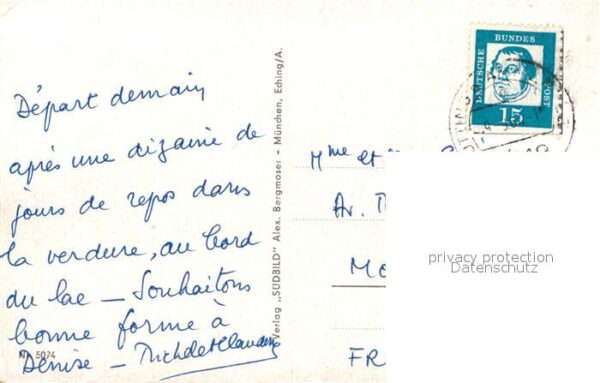 Départ demain
après une dizaine de
jours de repos dans
la verdure, au bord
du lac — Souhaitons
bonne forme à
Denise —
Nr. 5074
Verlag „SÜDBILD" Alex. Bergmoser - München, Eching/A.
DEUTSCHE
BUNDES
POST
15
Mme et
Av.
FR
privacy protection
Datenschutz